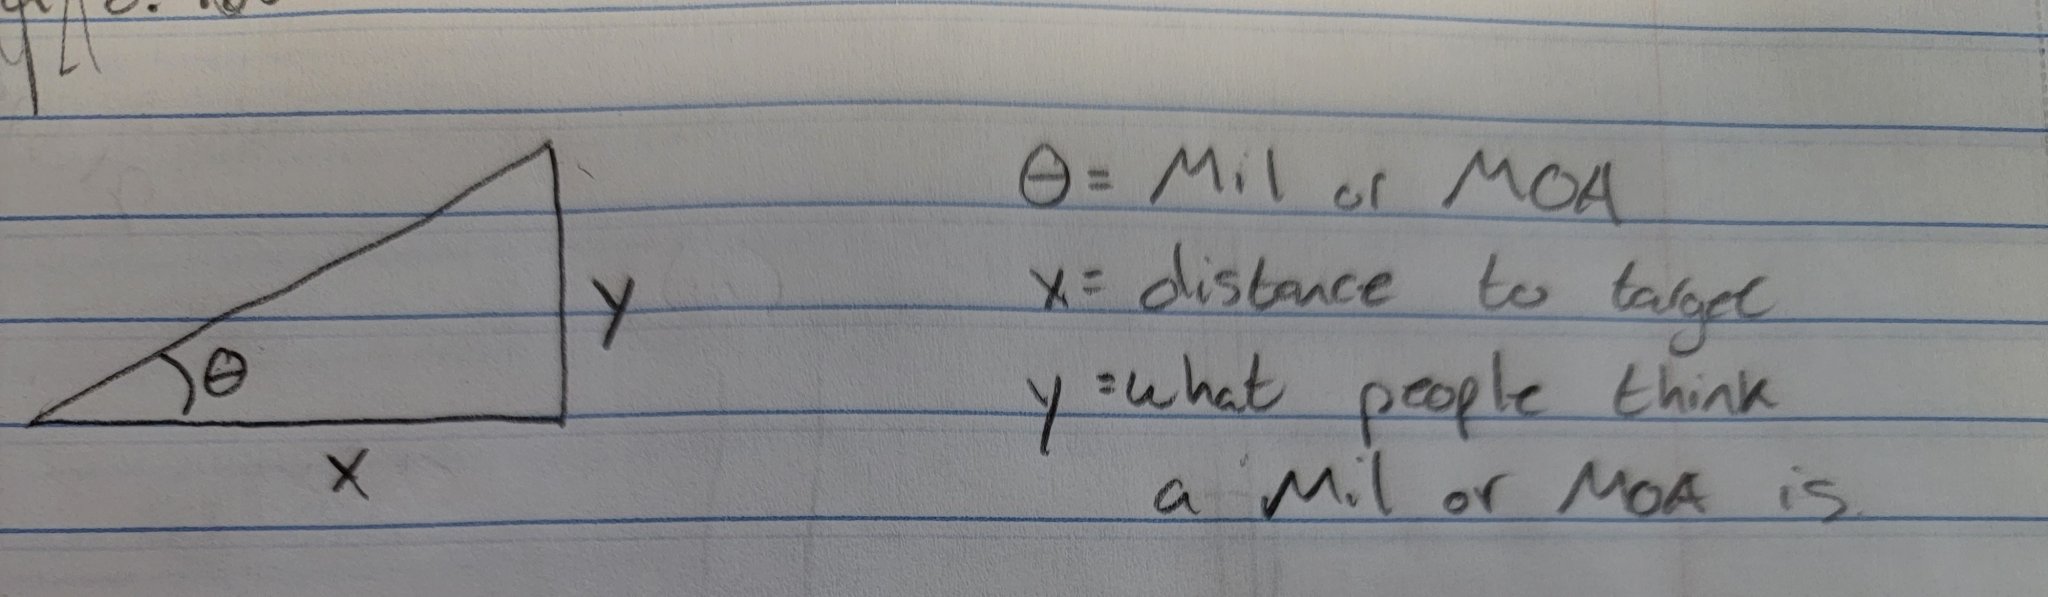 θ = Mil or MOA
x = distance to target
y = what people think
a Mil or MOA is.
y
θ
x